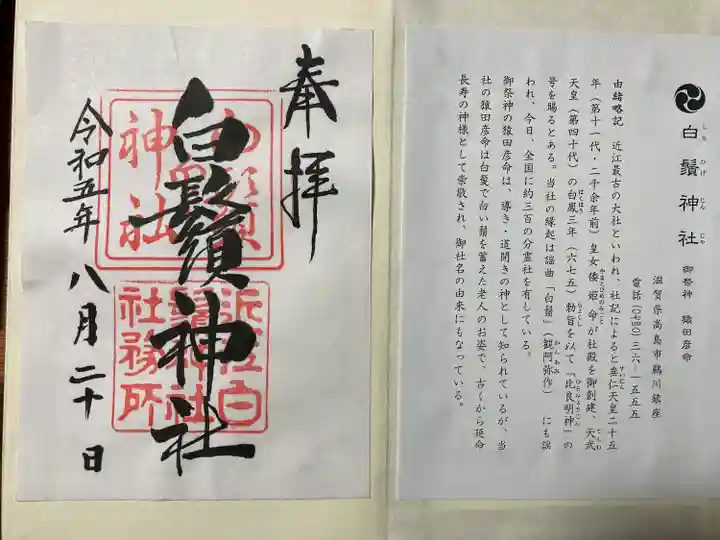 奉拝
白鬚神社
令和五年八月二十日
神社
近江白
鬚神社
社務所
しらひげじんじゃ
白鬚神社
御祭神 猿田彦命
滋賀県高島市鵜川鎮座
電話(〇七四〇)三六ー一五五五
由緒略記 近江最古の大社といわれ、社記によると垂仁天皇二十五
すいにん
年(第十一代・二千余年前)皇女倭姫命が社殿を御創建、天武
やまとひめのみこと
てんむ
天皇(第四十代)の白鳳三年(六七五)勅旨を以て「比良明神」の
はくほう
ちょくし
ひらみょうじん
号を賜るとある。当社の縁起は謡曲「白鬚」(観阿弥作)にも謡
かんあみ
われ、今日、全国に約三百の分霊社を有している。
御祭神の猿田彦命は、導き・道開きの神として知られているが、当
社の猿田彦命は白髪で白い鬚を蓄えた老人のお姿で、古くから延命
長寿の神様として崇敬され、御社名の由来にもなっている。